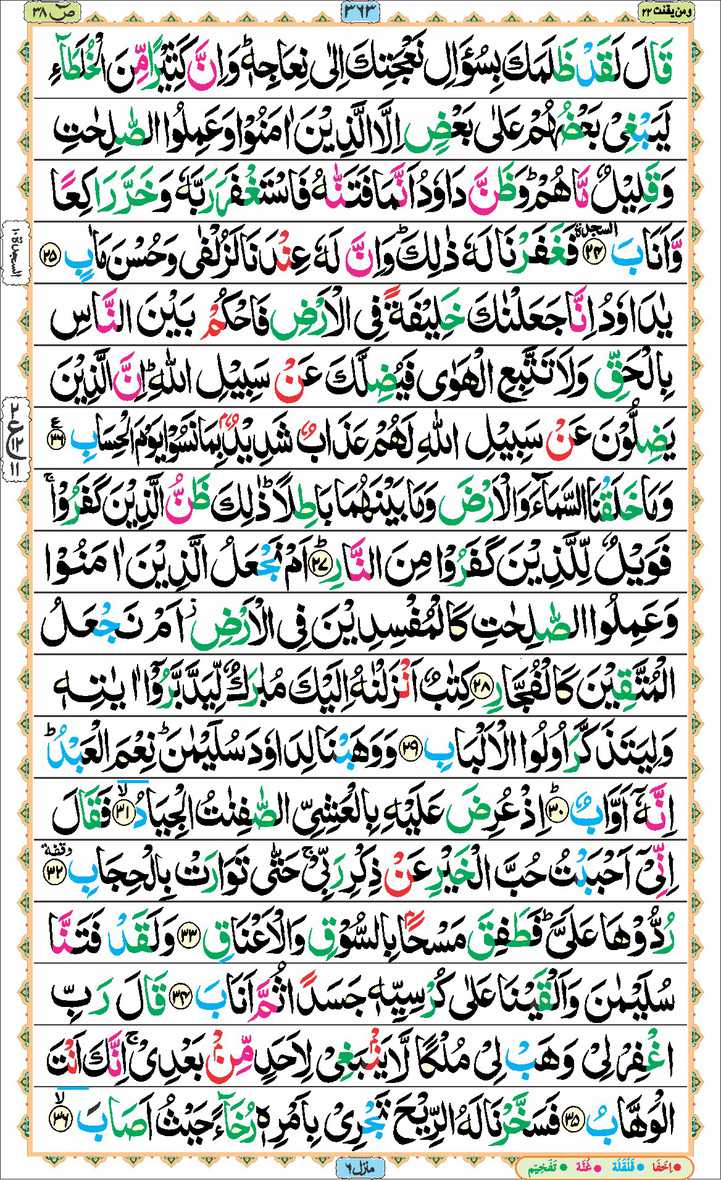 ومن یقنت ۲۳
۳۶۳
صٓ ۳۸
قَالَ لَقَدْ ظَلَمَكَ بِسُؤَالِ نَعْجَتِكَ اِلٰى نِعَاجِهٖ ؕ وَاِنَّ كَثِيْرًا مِّنَ الْخُلَطَآءِ
لَيَبْغِيْ بَعْضُهُمْ عَلٰى بَعْضٍ اِلَّا الَّذِيْنَ اٰمَنُوْا وَعَمِلُوا الصّٰلِحٰتِ
وَقَلِيْلٌ مَّا هُمْ ؕ وَظَنَّ دَاوٗدُ اَنَّمَا فَتَنّٰهُ فَاسْتَغْفَرَ رَبَّهٗ وَخَرَّ رَاكِعًا
وَّاَنَابَ ۟ السجدة ﴿۲۴﴾ فَغَفَرْنَا لَهٗ ذٰلِكَ ؕ وَاِنَّ لَهٗ عِنْدَنَا لَزُلْفٰى وَحُسْنَ مَاٰبٍ ﴿۲۵﴾
يٰدَاوٗدُ اِنَّا جَعَلْنٰكَ خَلِيْفَةً فِى الْاَرْضِ فَاحْكُمْ بَيْنَ النَّاسِ
بِالْحَقِّ وَلَا تَتَّبِعِ الْهَوٰى فَيُضِلَّكَ عَنْ سَبِيْلِ اللّٰهِ ؕ اِنَّ الَّذِيْنَ
يَضِلُّوْنَ عَنْ سَبِيْلِ اللّٰهِ لَهُمْ عَذَابٌ شَدِيْدٌۢ بِمَا نَسُوْا يَوْمَ الْحِسَابِ ﴿۲۶﴾ ع
وَمَا خَلَقْنَا السَّمَآءَ وَالْاَرْضَ وَمَا بَيْنَهُمَا بَاطِلًا ؕ ذٰلِكَ ظَنُّ الَّذِيْنَ كَفَرُوْا ۚ
فَوَيْلٌ لِّلَّذِيْنَ كَفَرُوْا مِنَ النَّارِ ؕ ﴿۲۷﴾ اَمْ نَجْعَلُ الَّذِيْنَ اٰمَنُوْا
وَعَمِلُوا الصّٰلِحٰتِ كَالْمُفْسِدِيْنَ فِى الْاَرْضِ ؗ اَمْ نَجْعَلُ
الْمُتَّقِيْنَ كَالْفُجَّارِ ﴿۲۸﴾ كِتٰبٌ اَنْزَلْنٰهُ اِلَيْكَ مُبٰرَكٌ لِّيَدَّبَّرُوْۤا اٰيٰتِهٖ
وَلِيَتَذَكَّرَ اُولُوا الْاَلْبَابِ ﴿۲۹﴾ وَوَهَبْنَا لِدَاوٗدَ سُلَيْمٰنَ ؕ نِعْمَ الْعَبْدُ ؕ
اِنَّهٗۤ اَوَّابٌ ؕ ﴿۳۰﴾ اِذْ عُرِضَ عَلَيْهِ بِالْعَشِيِّ الصّٰفِنٰتُ الْجِيَادُ ۙ ﴿۳۱﴾ فَقَالَ
اِنِّيْۤ اَحْبَبْتُ حُبَّ الْخَيْرِ عَنْ ذِكْرِ رَبِّيْ ۚ حَتّٰى تَوَارَتْ بِالْحِجَابِ ۥ وقفة ﴿۳۲﴾
رُدُّوْهَا عَلَيَّ ؕ فَطَفِقَ مَسْحًۢا بِالسُّوْقِ وَالْاَعْنَاقِ ﴿۳۳﴾ وَلَقَدْ فَتَنَّا
سُلَيْمٰنَ وَاَلْقَيْنَا عَلٰى كُرْسِيِّهٖ جَسَدًا ثُمَّ اَنَابَ ﴿۳۴﴾ قَالَ رَبِّ
اغْفِرْ لِيْ وَهَبْ لِيْ مُلْكًا لَّا يَنْۢبَغِيْ لِاَحَدٍ مِّنْۢ بَعْدِيْ ۚ اِنَّكَ اَنْتَ
الْوَهَّابُ ﴿۳۵﴾ فَسَخَّرْنَا لَهُ الرِّيْحَ تَجْرِيْ بِاَمْرِهٖ رُخَآءً حَيْثُ اَصَابَ ۙ ﴿۳۶﴾
السجدة ۱۰
منزل ۶
اِخفَا • قَلْقَلَة • غُنَّة • تَفْخِيْم •